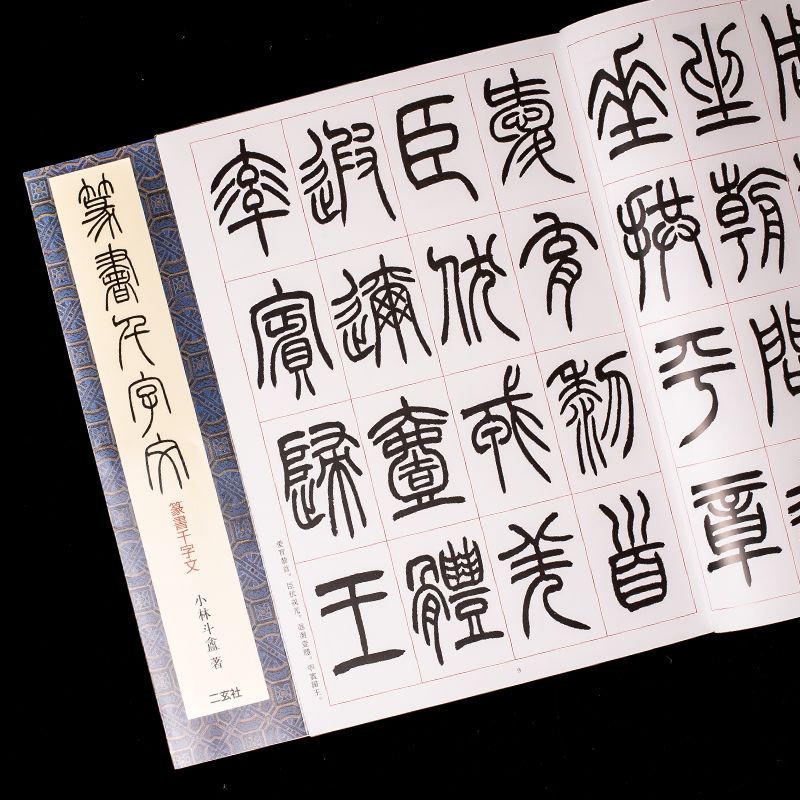 篆書千字文
篆書千字文
小林斗盦 著
二玄社
坐朝問
垂拱平章
愛育黎首
臣伏戎羌
遐邇壹體
率賓歸王
愛育黎首。臣伏戎羌。遐邇壹體。率賓歸王。
9